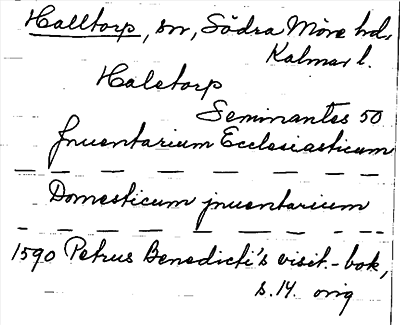 Halltorp, sn, Södra Möre hd,
Kalmar l.
Haletorp
Seminantes 50
Jnuentarium Ecclesiasticum
Domesticum jnuentarium
1590 Petrus Benedicti's visit.-bok,
s.14. orig